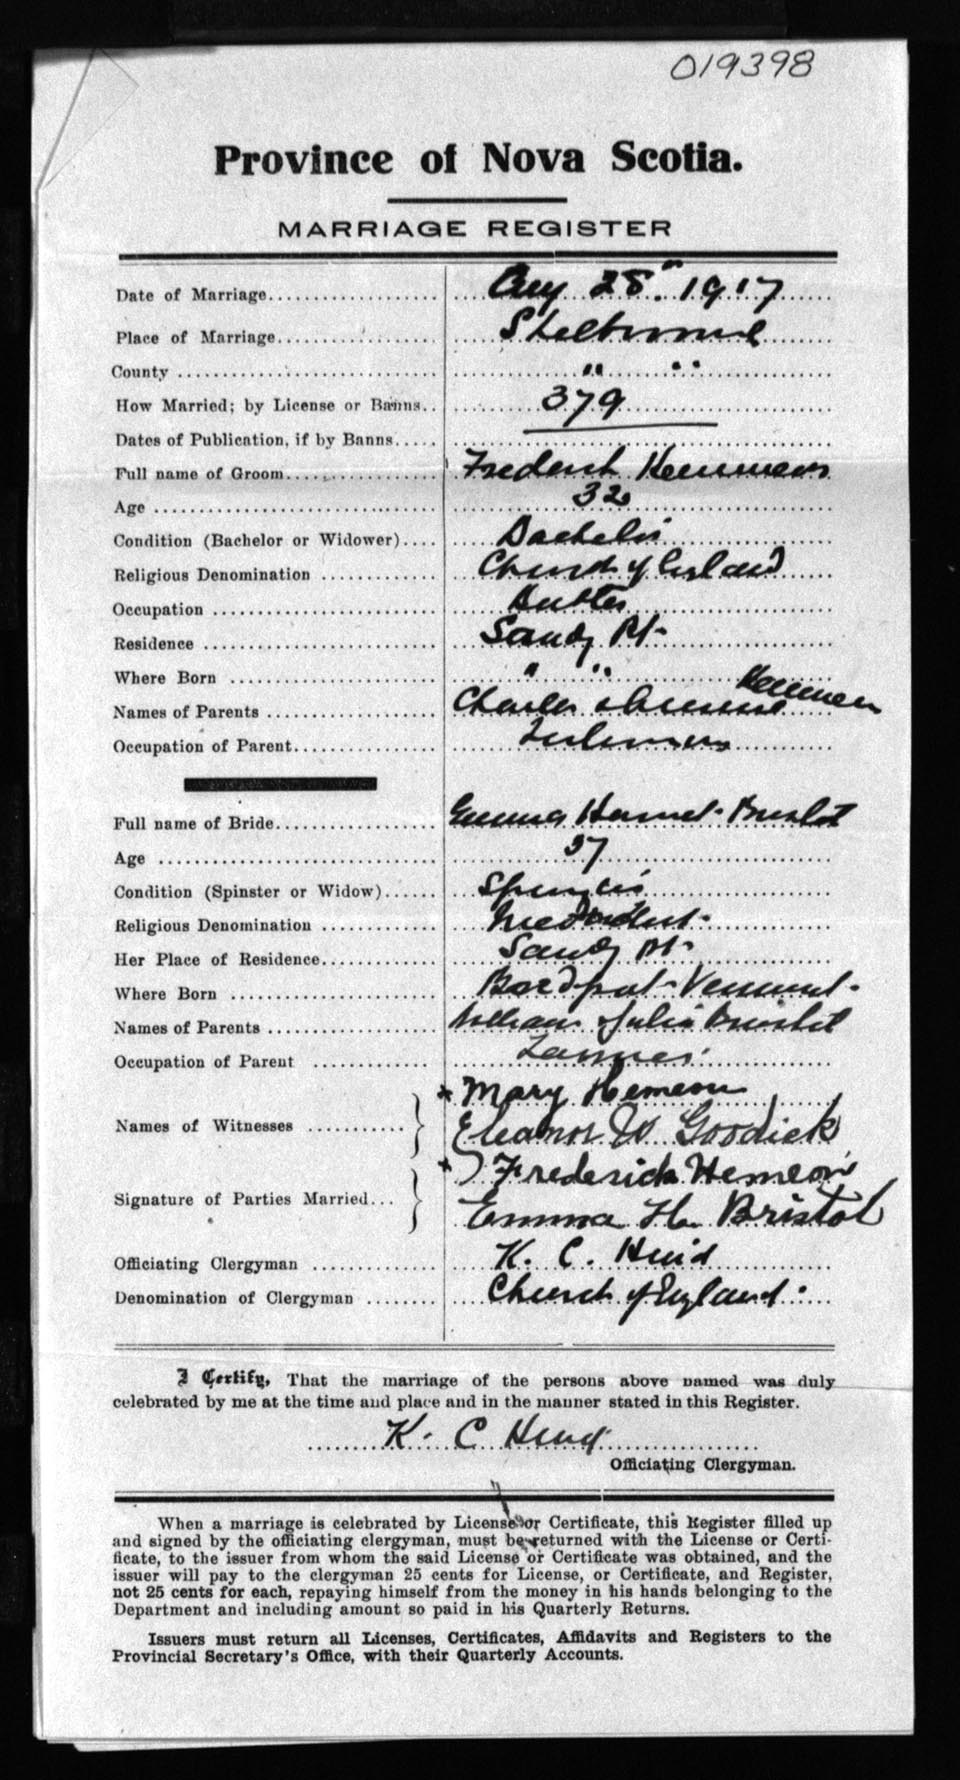 019398
Province of Nova Scotia.
MARRIAGE REGISTER
Date of Marriage Aug 28th 1917
Place of Marriage Shelburne
County " "
How Married; by License or Banns 379
Dates of Publication, if by Banns
Full name of Groom Frederick Hemmeon
Age 32
Condition (Bachelor or Widower) Bachelor
Religious Denomination Church of England
Occupation Butler
Residence Sandy Pt
Where Born " "
Names of Parents Charles Hemmeon
Occupation of Parent
Full name of Bride Emma Harriet Bristol
Age 37
Condition (Spinster or Widow) Spinster
Religious Denomination
Her Place of Residence Sandy Pt
Where Born Vermont
Names of Parents William Julia Bristol
Occupation of Parent Farmer
Names of Witnesses x Mary Hemeon
Eleanor W Goodick
Signature of Parties Married x Frederick Hemeon
Emma H. Bristol
Officiating Clergyman K. C. Hind
Denomination of Clergyman Church of England
I Certify, That the marriage of the persons above named was duly
celebrated by me at the time and place and in the manner stated in this Register.
K. C Hind
Officiating Clergyman.
When a marriage is celebrated by License or Certificate, this Register filled up
and signed by the officiating clergyman, must be returned with the License or Certi-
ficate, to the issuer from whom the said License or Certificate was obtained, and the
issuer will pay to the clergyman 25 cents for License, or Certificate, and Register,
not 25 cents for each, repaying himself from the money in his hands belonging to the
Department and including amount so paid in his Quarterly Returns.
Issuers must return all Licenses, Certificates, Affidavits and Registers to the
Provincial Secretary's Office, with their Quarterly Accounts.